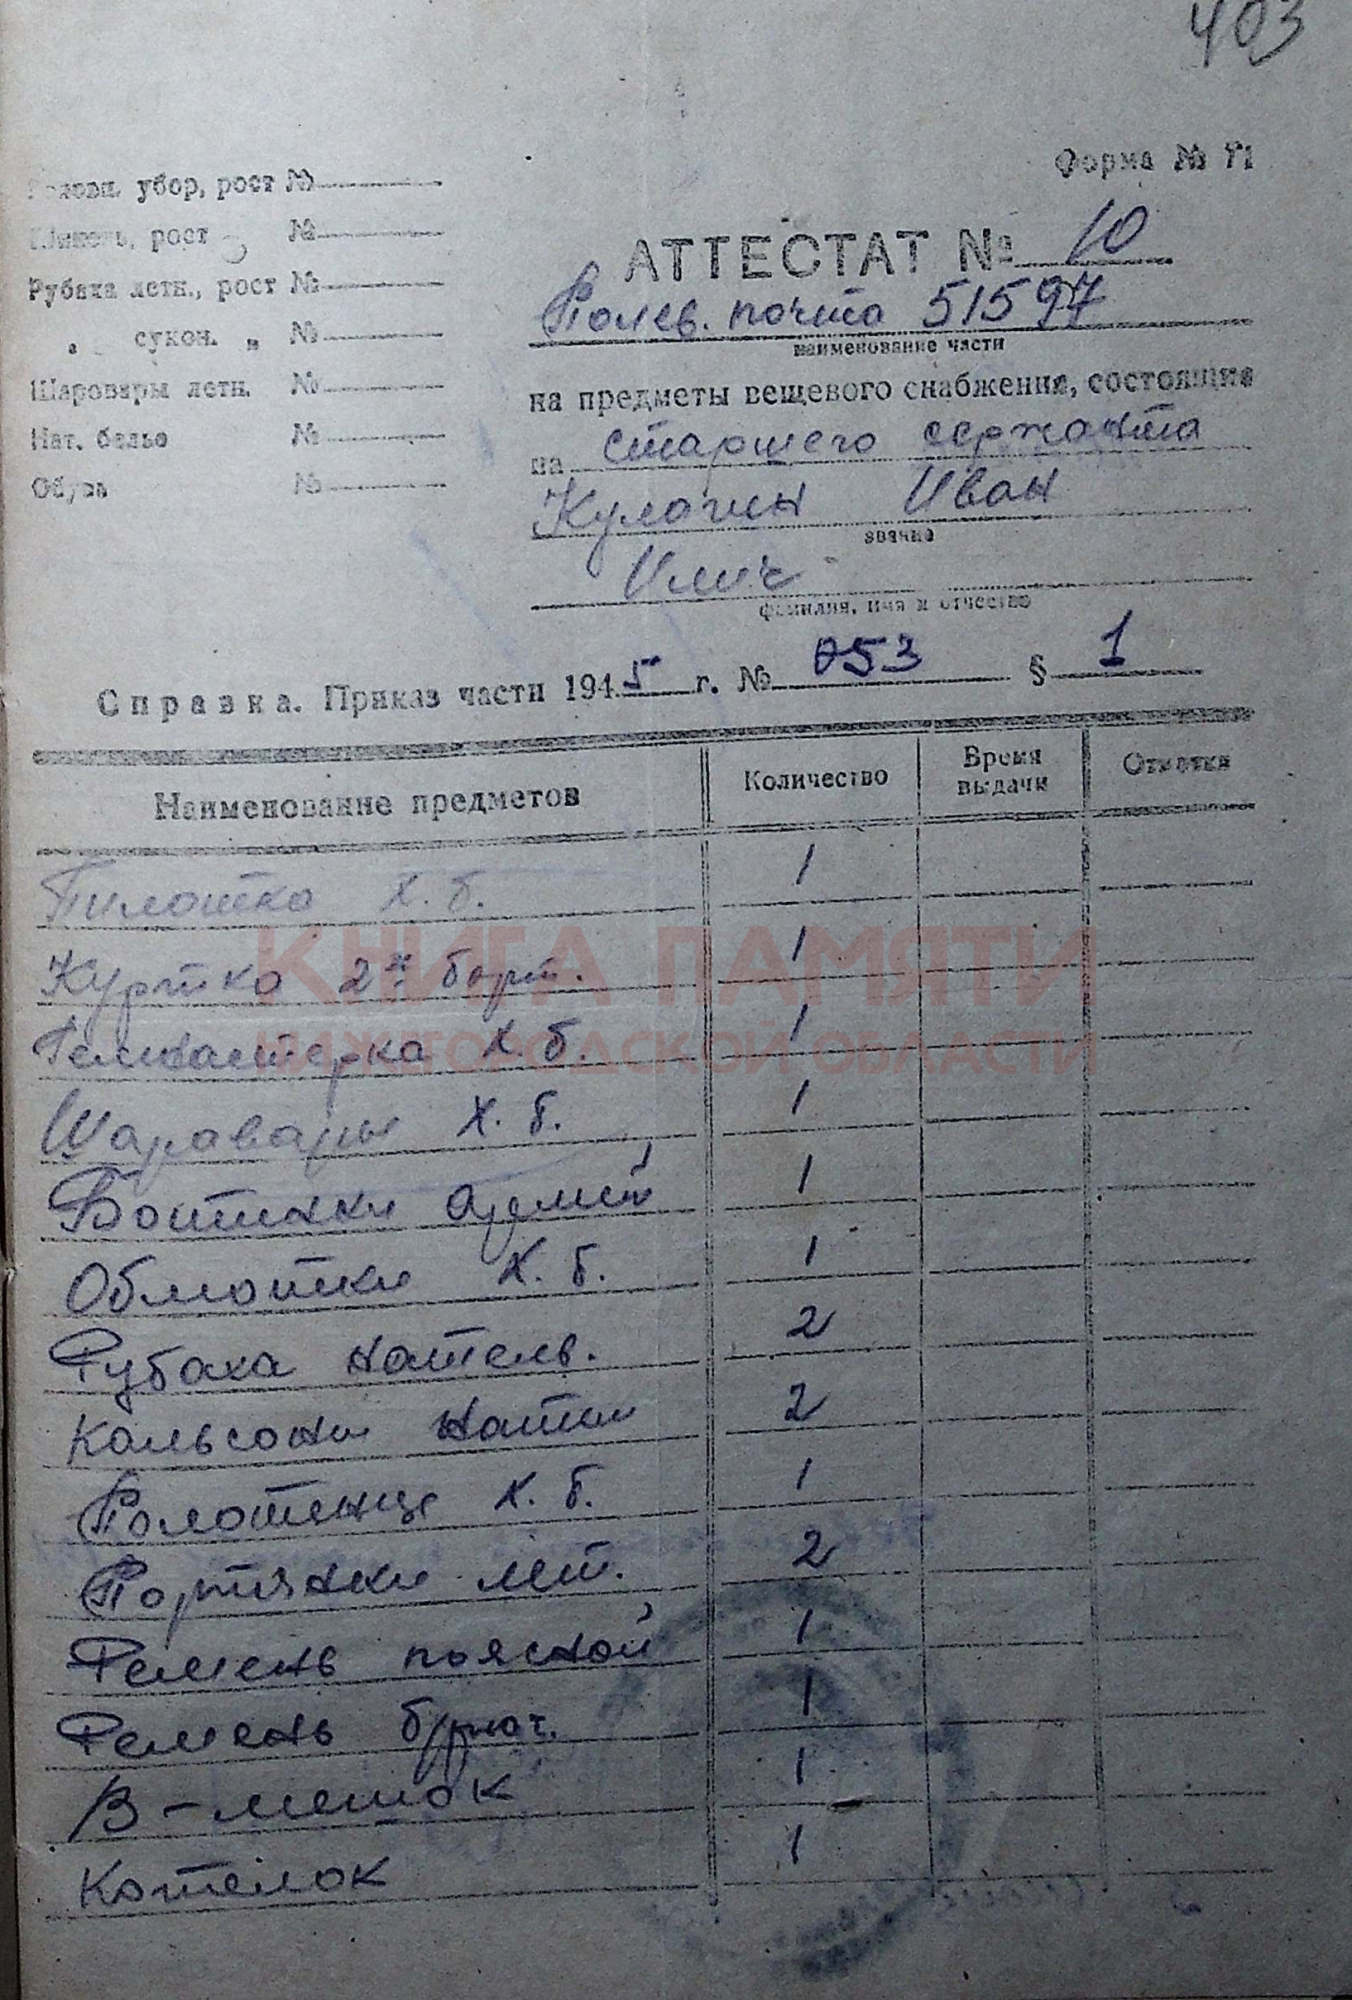 403
Форма № 71
Головн. убор, рост №
Шинель, рост 3 №
Рубаха летн., рост №
" сукон. " №
Шаровары летн. №
Нат. белье №
Обувь №
АТТЕСТАТ № 10
Полев. почта 51597
наименование части
на предметы вещевого снабжения, состоящие
на старшего сержанта
Кулагин Иван
звание
Илич
фамилия, имя и отчество
Справка. Приказ части 1945 г. № 053 § 1
Наименование предметов Количество Время выдачи Отметка
Пилотка х.б. 1
Куртка 2х борт. 1
Гемнастерка х.б. 1
Шаравары х.б. 1
Ботинки 1
Обмотки х.б. 1
Рубаха нательв. 2
Кальсоны 2
Полотенце х.б. 1
Портянки лет. 2
Ремень поясной 1
Ремень брюч. 1
В-мешок 1
Котелок 1
КНИГА ПАМЯТИ
НИЖЕГОРОДСКОЙ ОБЛАСТИ